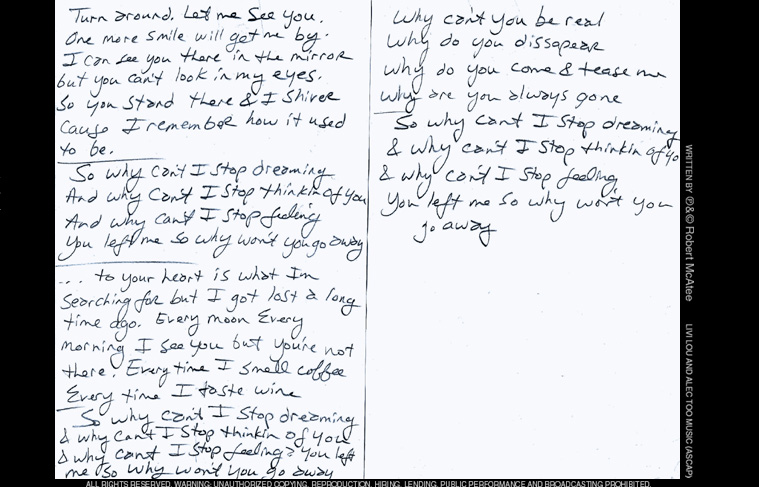 Turn around. Let me see you.
One more smile will get me by.
I can see you there in the mirror
but you can't look in my eyes.
So you stand there & I shiver
Cause I remember how it used
to be.
So why can't I stop dreaming
And why can't I stop thinkin of you
And why can't I stop feeling
You left me so why won't you go away
... to your heart is what Im
Searching for but I got lost a long
time ago. Every moon Every
morning I see you but you're not
there. Every time I smell coffee
Every time I taste wine
So why can't I stop dreaming
& why can't I stop thinkin of you
& why can't I stop feeling? You left
me so why won't you go away
Why can't you be real
Why do you dissapear
Why do you come & tease me
Why are you always gone
So why can't I stop dreaming
& why can't I stop thinkin of yo
& why can't I stop feeling
You left me so why won't you
go away
WRITTEN BY ℗&© Robert McAtee
LIVI LOU AND ALEC TOO MUSIC (ASCAP)
ALL RIGHTS RESERVED. WARNING: UNAUTHORIZED COPYING, REPRODUCTION, HIRING, LENDING, PUBLIC PERFORMANCE AND BROADCASTING PROHIBITED.